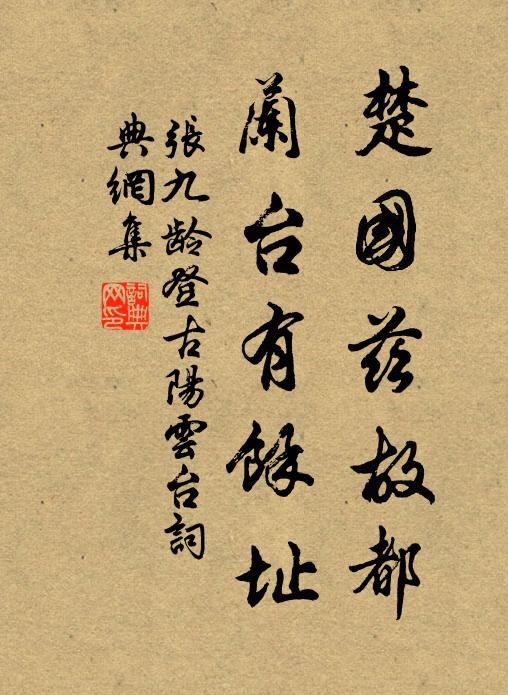 楚國茲故都
蘭台有餘址
張九齡登古陽雲台詞
典網集
詞典網印